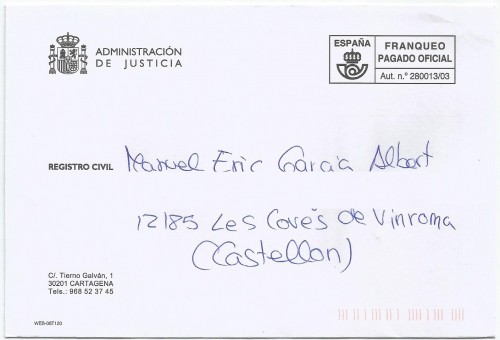 ADMINISTRACIÓN
DE JUSTICIA
ESPAÑA
FRANQUEO
PAGADO OFICIAL
Aut. n.º 280013/03
REGISTRO CIVIL
Manuel Eric García Albert
12185 Les Coves de Vinroma
(Castellon)
C/. Tierno Galván, 1
30201 CARTAGENA
Tels.: 968 52 37 45
WEB-06T120